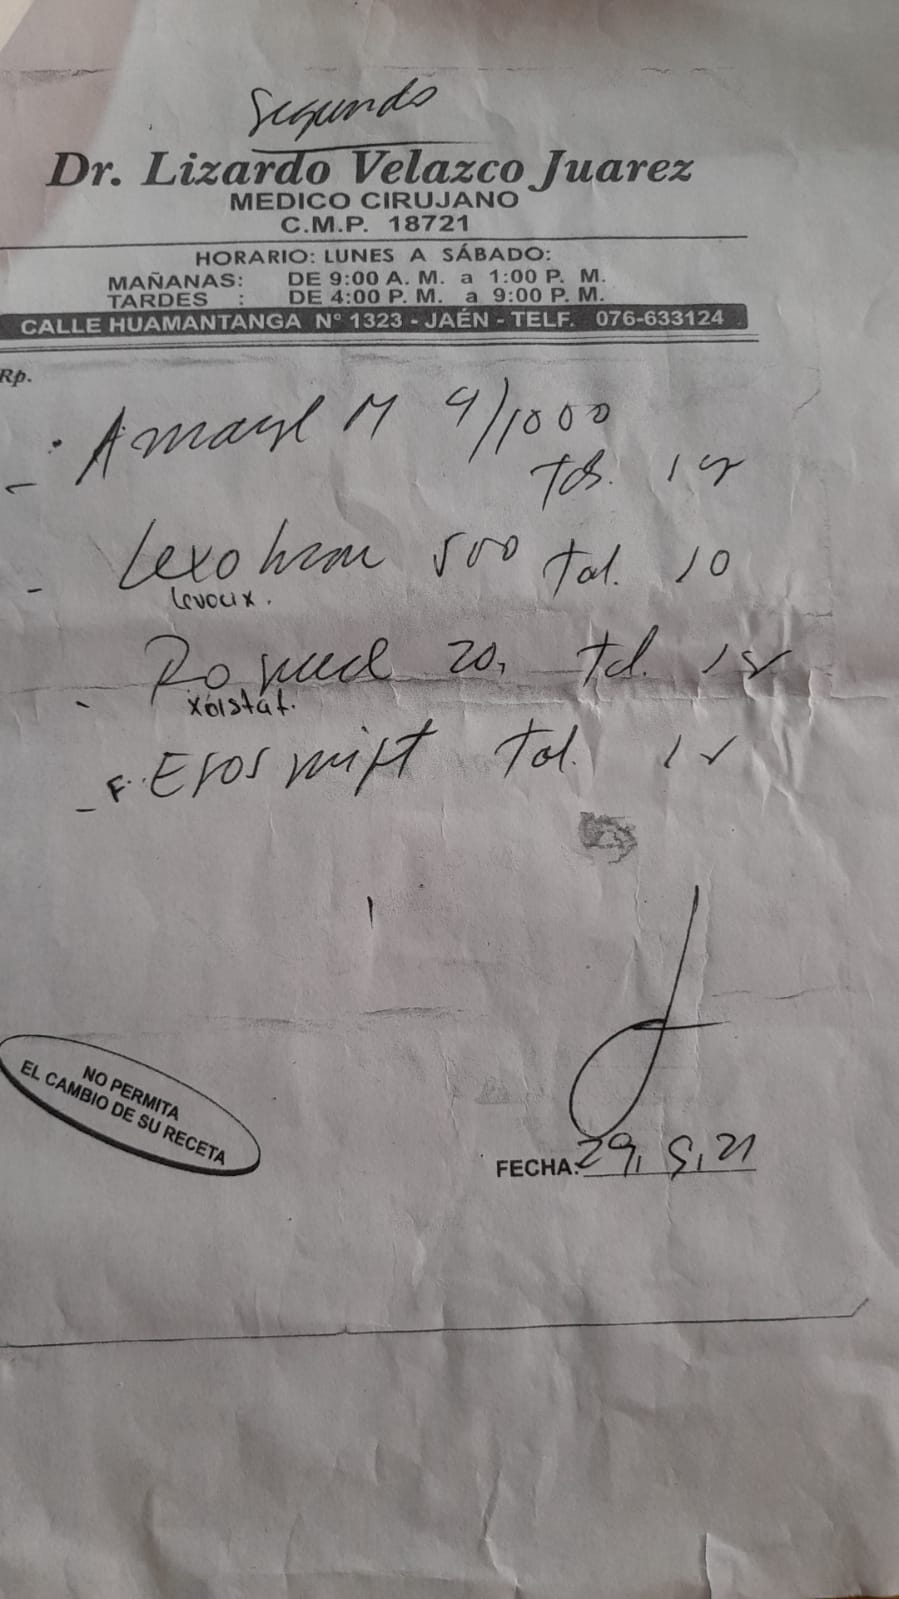 Segundo
Dr. Lizardo Velazco Juarez
MEDICO CIRUJANO
C.M.P. 18721
HORARIO: LUNES A SÁBADO:
MAÑANAS: DE 9:00 A. M. a 1:00 P. M.
TARDES : DE 4:00 P. M. a 9:00 P. M.
CALLE HUAMANTANGA N° 1323 - JAÉN - TELF. 076-633124
Rp.
- Amaryl M 4/1000
- 500 Tal. 10
levocix.
- 20,
xolstat.
- Tal.
NO PERMITA
EL CAMBIO DE SU RECETA
FECHA: 29, 5, 21